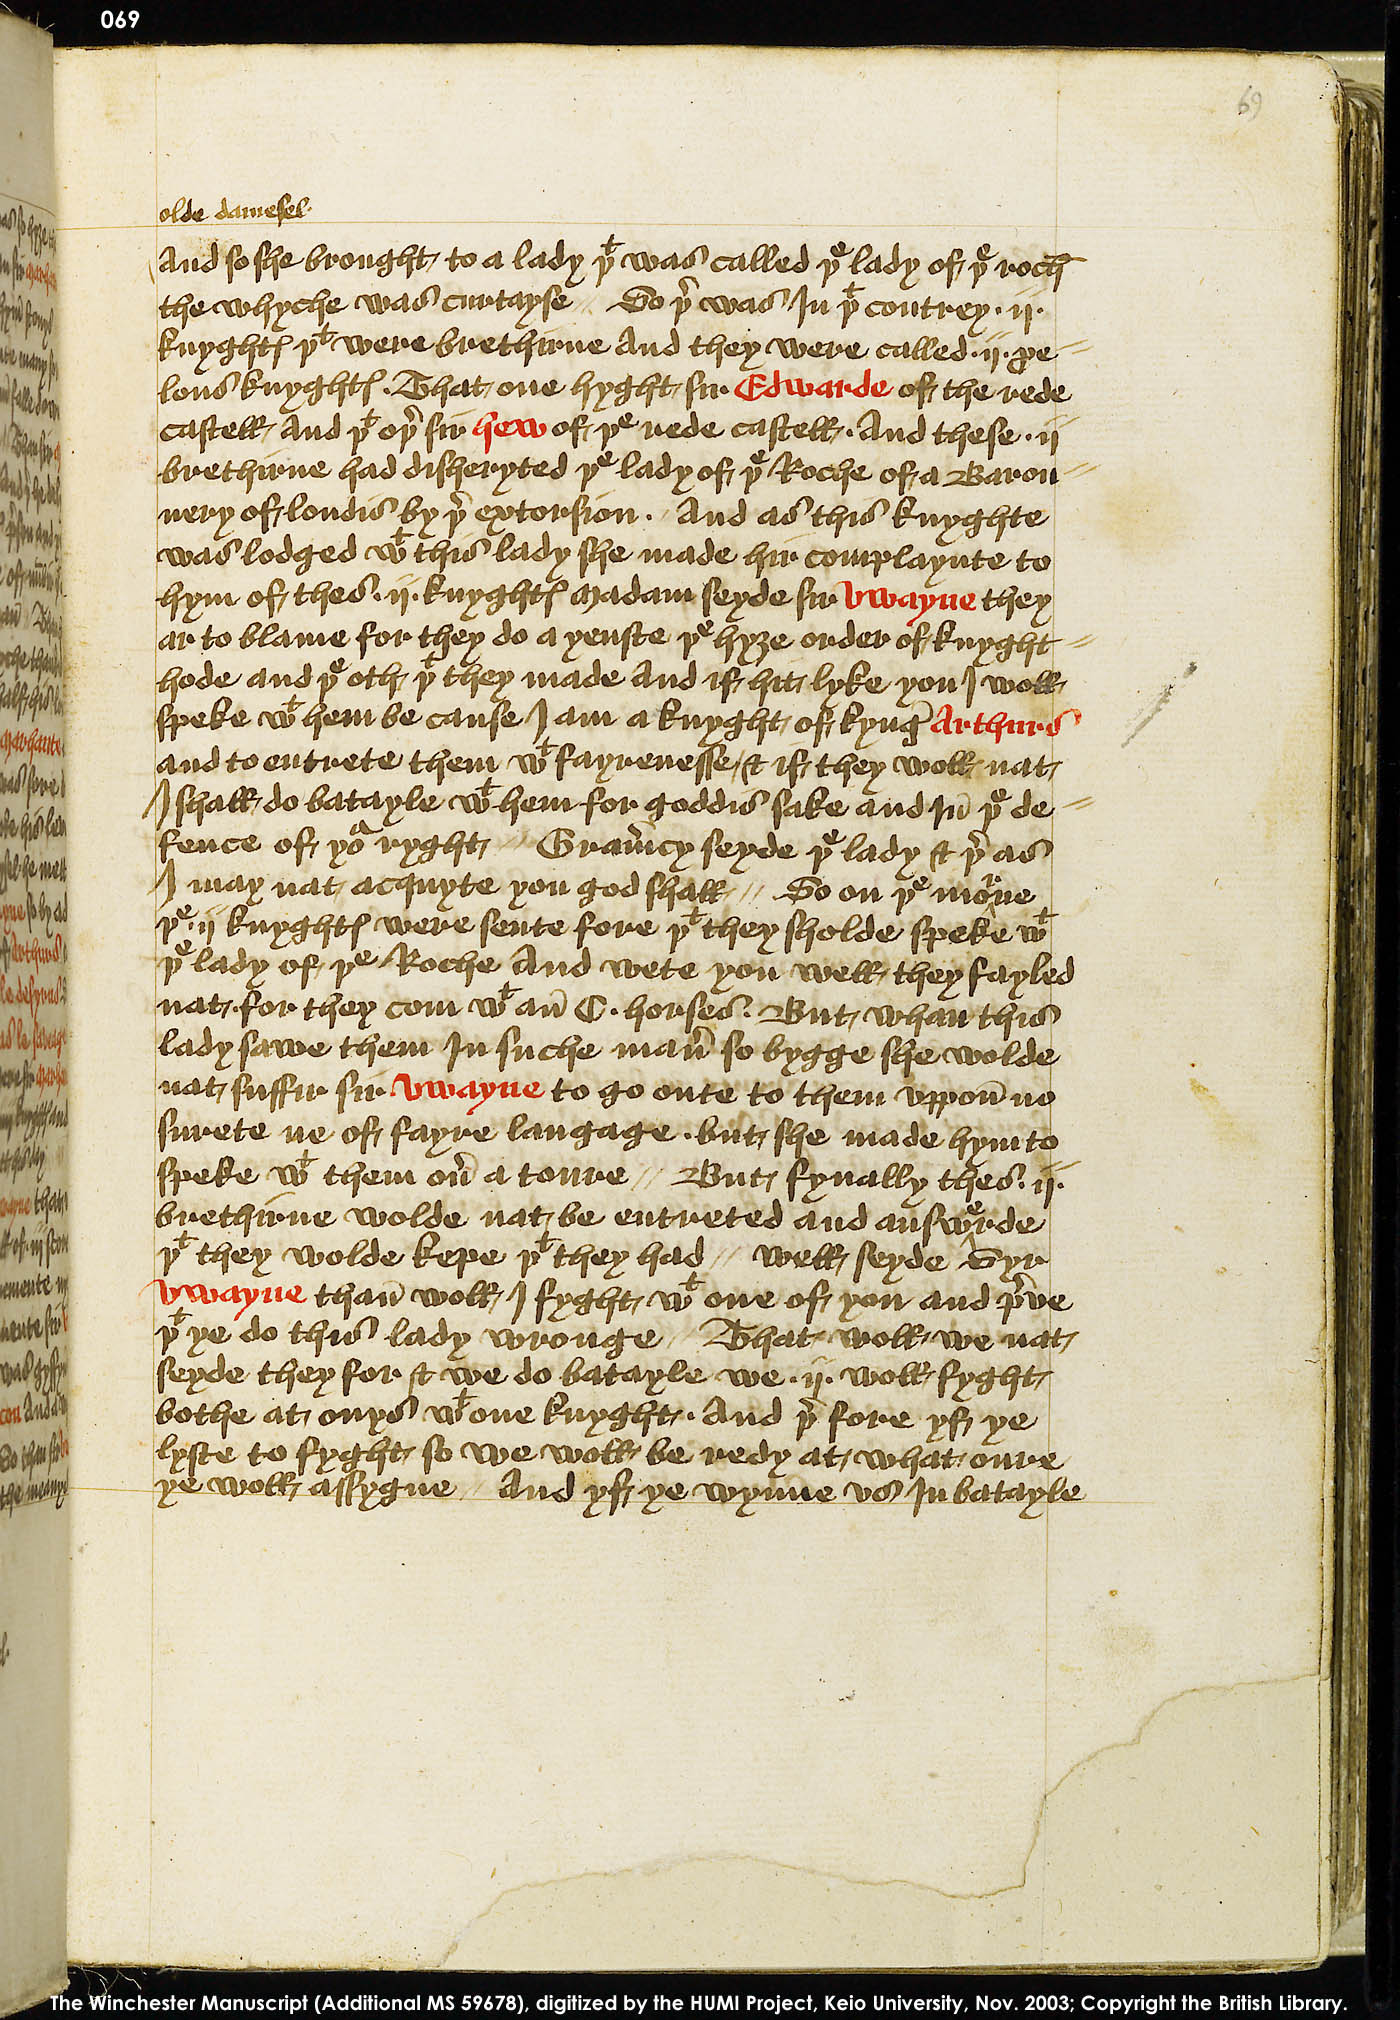 069
69
olde damesel·
And so she brought to a lady þᵗ was called þᵉ lady of þᵉ roch
the whyche was curtayse // So þr̄ was In þᵗ contrey · ij ·
knyghtꝭ þᵗ were brethirne And they were called · ij · ꝑe=
lous knyghtꝭ · That one hyght sir Edwarde of the rede
castell And þᵗ oþr̄ sir hew of þᵉ rede castell · And these · ij
brethirne had disheryted þᵉ lady of þᵉ Roche of a Baron=
nery of londis by þr̄ extorsion · // And as this knyghte
was lodged wᵗ this lady she made hir complaynte to
hym of thes · ij · knyghtꝭ Madam seyde sir Vwayne they
ar to blame for they do a yenste þᵉ hyȝe order of knyght=
hode and þᵉ oth þᵗ they made And if hit lyke you I woll
speke wᵗ hem be cause I am a knyght of kyngꝭ Arthurs
and to entrete them wᵗ fayrenesse / & if they woll nat
I shall do batayle wᵗ hem for goddis sake and In̄ þᵉ de=
fence of yoʳ ryght // Gram̄cy seyde þᵉ lady & þr̄ as
I may nat acquyte you god shall // So on þᵉ morne
þᵉ · ij knyghtꝭ were sente fore þᵗ they sholde speke wᵗ
þᵉ lady of þᵉ Roche And wete you well they fayled
nat · for they com wᵗ an̄ C · horses · But whan this
lady sawe them In suche man̄ so bygge she wolde
nat suffir sir Vwayne to go oute to them vppon̄ no
surete ne of fayre langage · but she made hym to
speke wᵗ them ou̅ a toure // But fynally thes · ij ·
brethirne wolde nat be entreted and answerde
þᵗ they wolde kepe þᵗ they had // well seyde Syr
Vwayne than̄ woll I fyght wᵗ one of you and p̄ve
þᵗ ye do this lady wronge // That woll we nat
seyde they for & we do batayle we · ij · woll fyght
bothe at onys wᵗ one knyght · And þr̄ fore yf ye
lyste to fyght so we woll be redy at what oure
ye woll assygne // And yf ye wynne vs In batayle
The Winchester Manuscript (Additional MS 59678), digitized by the HUMI Project, Keio University, Nov. 2003; Copyright the British Library.